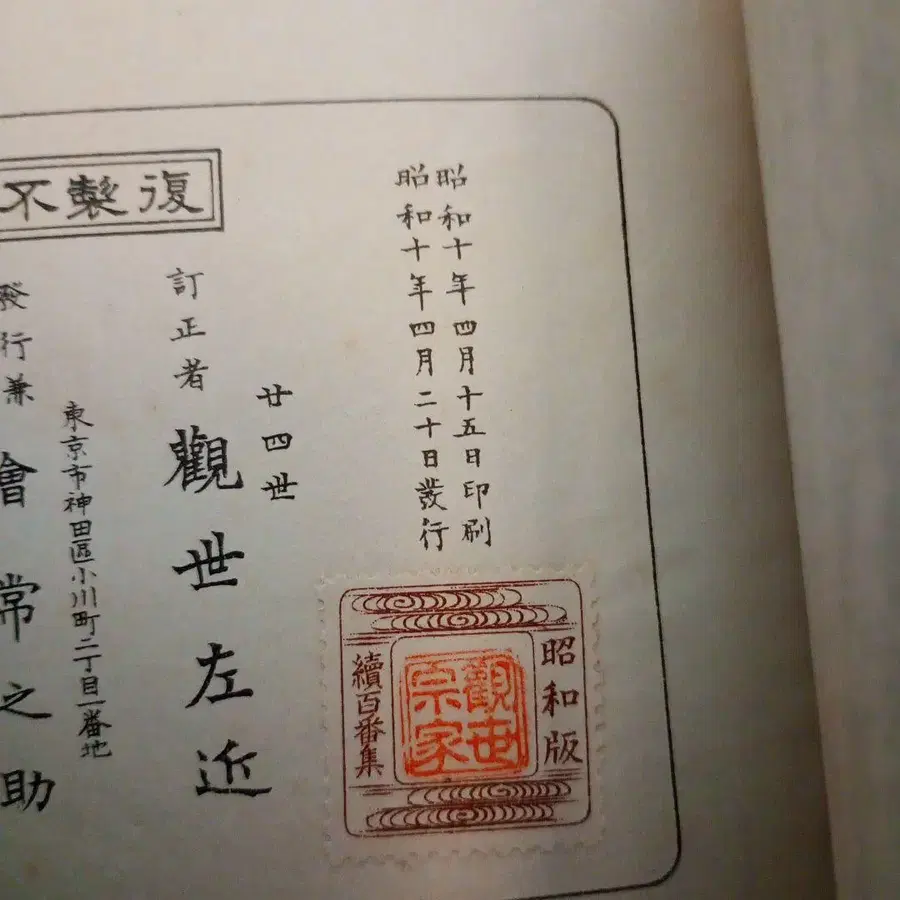 昭和十年四月十五日印刷
昭和十年四月二十日發行
昭和版
觀世宗家
續百番集
廿四世
訂正者 觀世左近
復製不
東京市神田區小川町二丁目一番地
發行兼 會常之助